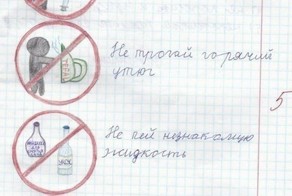 Не трогай горячий
утюг
5
Не пей незнакомую
жидкость